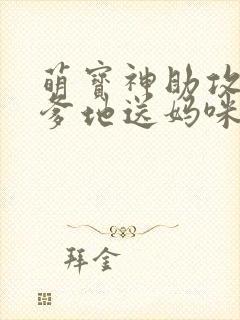 萌宝神助攻
爹地送妈咪
拜金